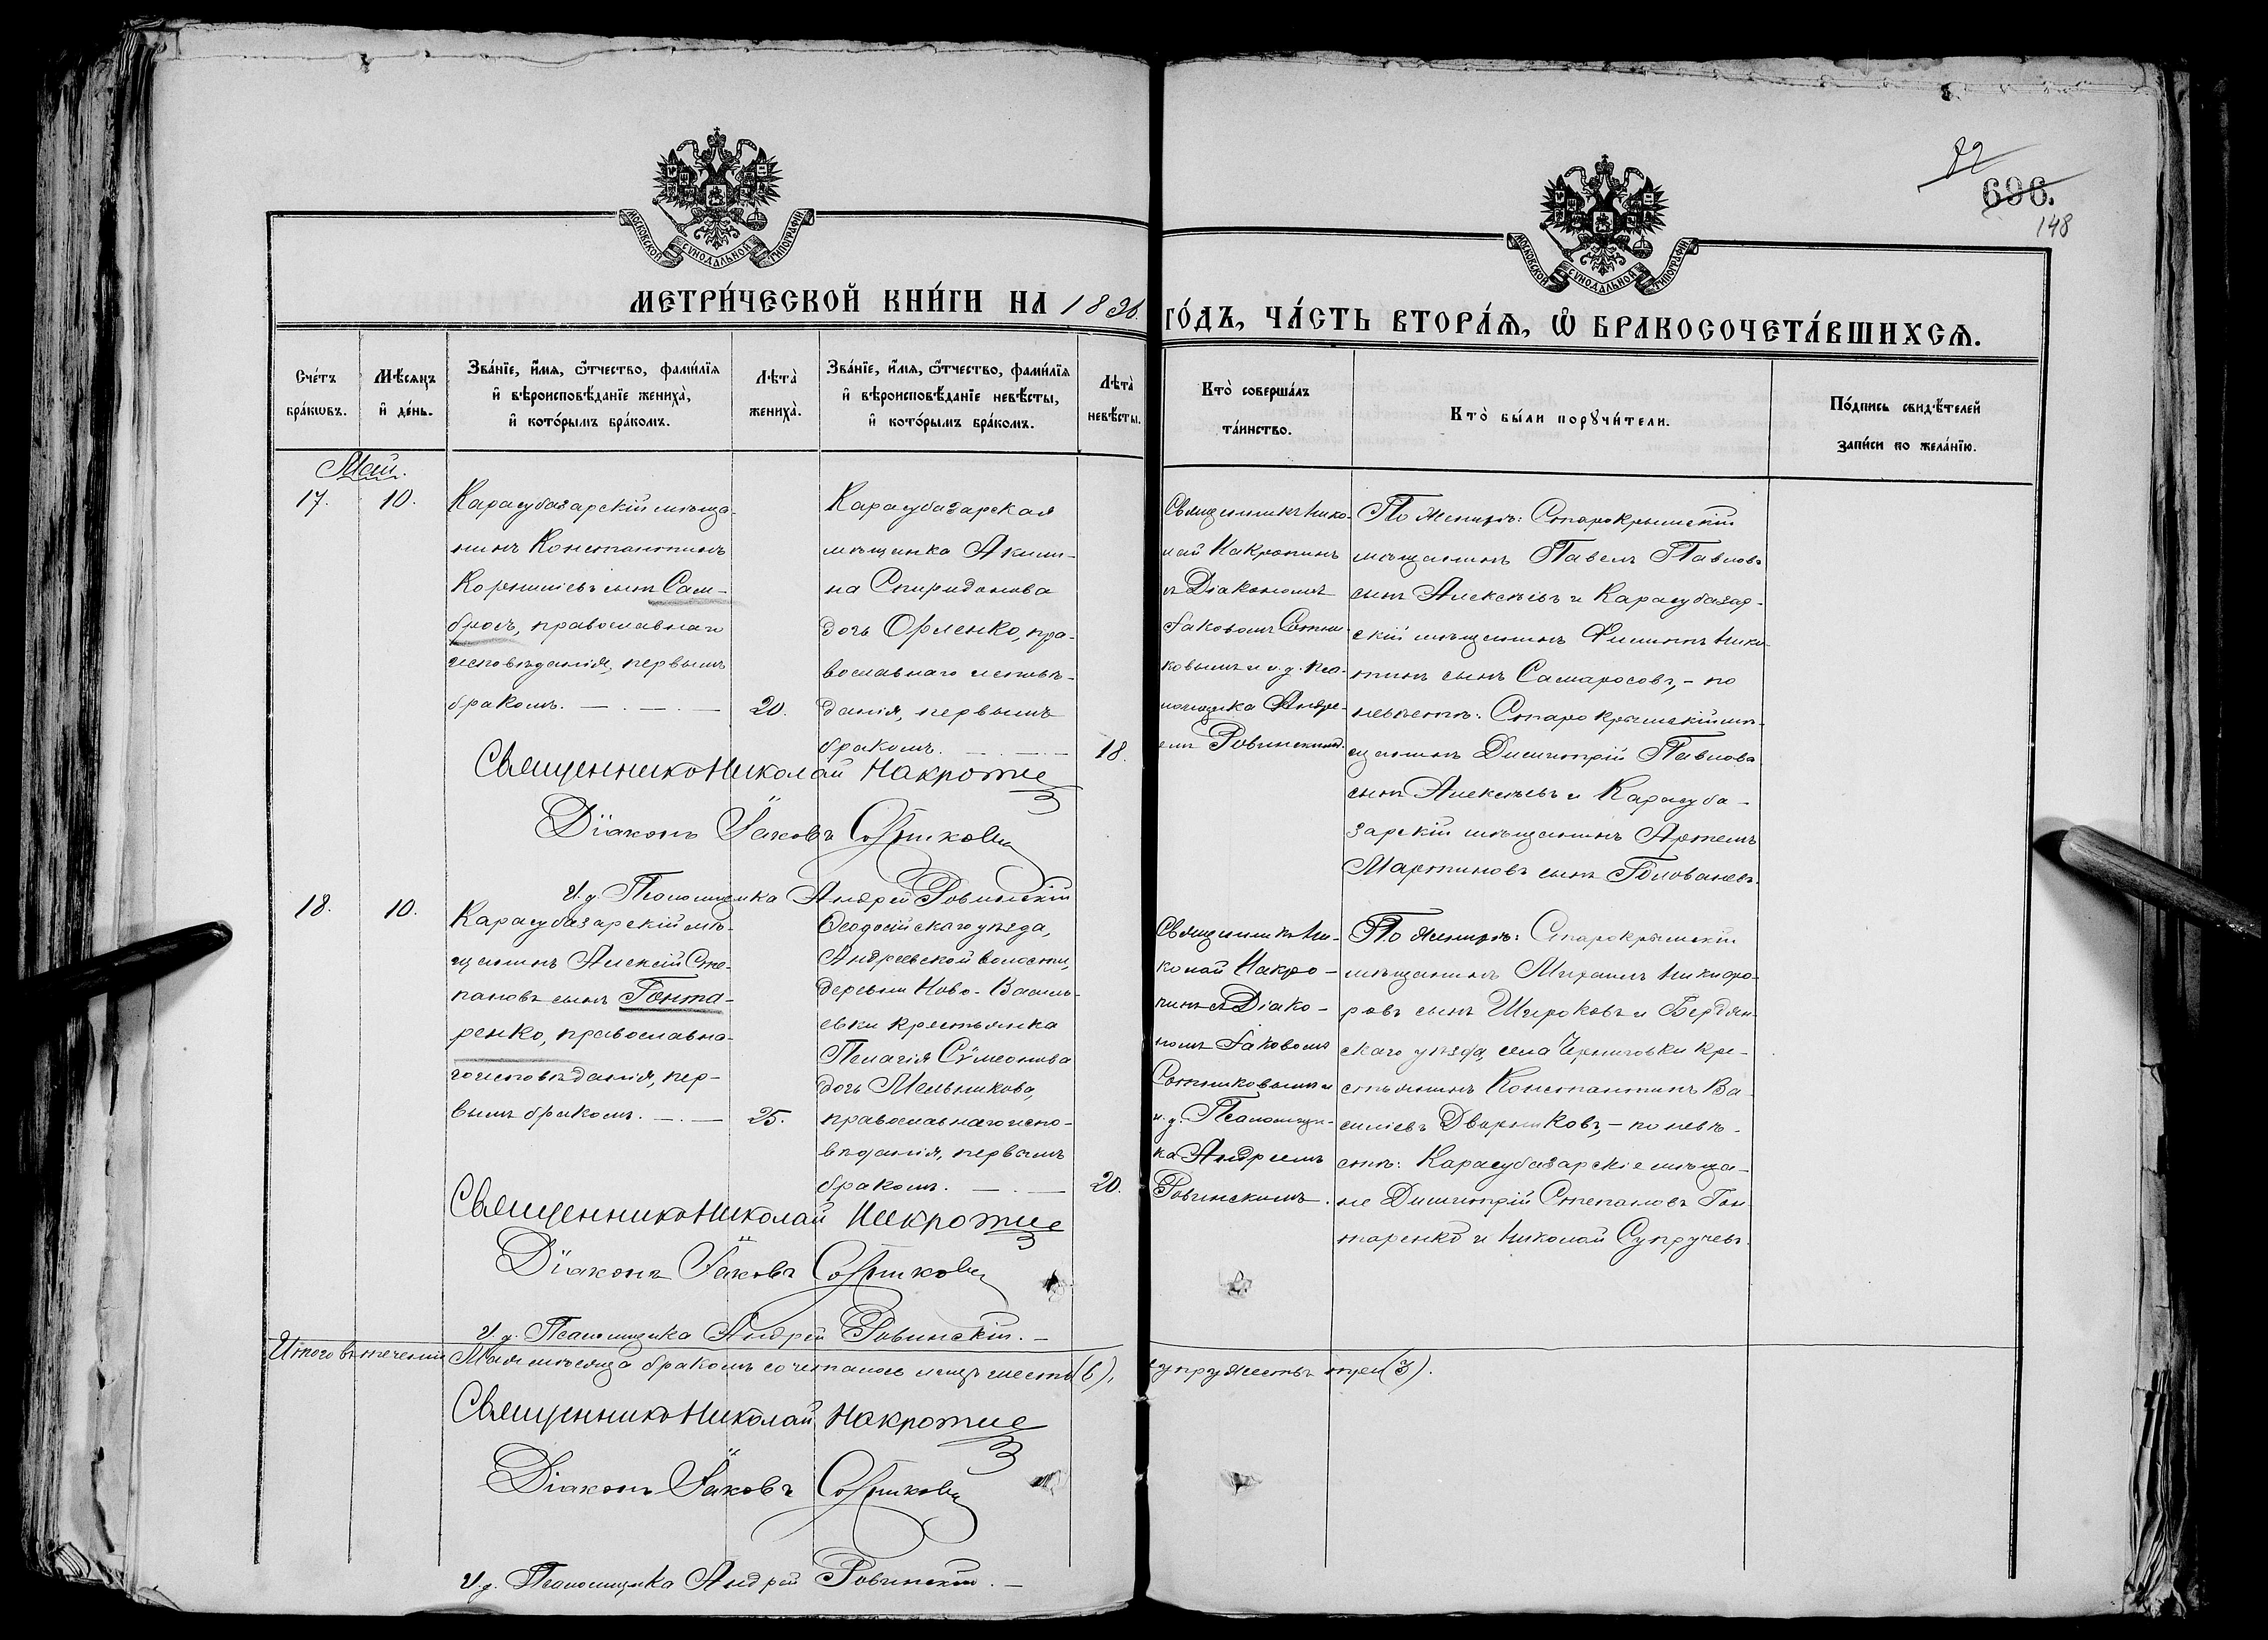 22
696.
148
МОСКОВСКОЙ СѴНОДАЛЬНОЙ ТИПОГРАФІИ
МОСКОВСКОЙ СѴНОДАЛЬНОЙ ТИПОГРАФІИ
МЕТРИ́ЧЕСКОЙ КНИ́ГИ НА 1896.
ГО́ДЪ, ЧА́СТЬ ВТОРА́Ѧ, Ѡ БРАКОСОЧЕТА́ВШИХСѦ.
Сче́тъ
бра́кѡвъ.
Мѣ́сяцъ
и҆ де́нь.
Зва́нїе, и҆́мя, ѻ҆́тчество, фами́лїя
и҆ вѣроисповѣ́данїе жениха̀,
и҆ кото́рымъ бра́комъ.
Лѣта̀
жениха̀.
Зва́нїе, и҆́мя, ѻ҆́тчество, фами́лїя
и҆ вѣроисповѣ́данїе невѣ́сты,
и҆ кото́рымъ бра́комъ.
Лѣта̀
невѣ́сты.
Кто̀ соверша́лъ
та́инство.
Кто̀ бы́ли порꙋчи́тели.
По́дпись свидѣ́телей
за́писи по жела́нїю.
Май.
17.
10.
Карасубазарскій мѣща-
нинъ Константинъ
Корниліевъ сынъ Сам-
брось, православнаго
исповѣданія, первымъ
бракомъ.
20.
Карасубазарская
мѣщанка Акили-
на Спиридонова
дочь Орленко, пра-
вославнаго исповѣ-
данія, первымъ
бракомъ.
18.
Священникъ Нико-
лай Накропинъ
съ Діакономъ
Іаковомъ Сотни-
ковымъ и и. д. пса-
ломщика Андре-
емъ Ровинскимъ.
По женихѣ: Старокрымскій
мѣщанинъ Павелъ Павловъ
сынъ Алексѣевъ и Карасубазар-
скій мѣщанинъ Филиппъ Ники-
тинъ сынъ Самаросовъ, - по
невѣстѣ: Старокрымскій мѣ-
щанинъ Димитрій Павловъ
сынъ Алексѣевъ и Карасуба-
зарскій мѣщанинъ Артемъ
Мартиновъ сынъ Голованевъ.
Священникъ Николай Накропинъ
Діаконъ Іаковъ Сотниковъ
И. д. Псаломщика Андрей Ровинскій
18.
10.
Карасубазарскій мѣ-
щанинъ Алексій Сте-
пановъ сынъ Гонта-
ренко, православна-
го исповѣданія, пер-
вымъ бракомъ.
25.
Ѳеодосійскаго уѣзда,
Андреевской волости,
деревни Ново-Василь-
евки крестьянка
Пелагія Сѵмеонова
дочь Мельникова,
православнаго испо-
вѣданія, первымъ
бракомъ.
20.
Священникъ Ни-
колай Накро-
пинъ съ Діако-
номъ Іаковомъ
Сотниковымъ и
и. д. Псаломщи-
ка Андреемъ
Ровинскимъ.
По женихѣ: Старокрымскій
мѣщанинъ Михаилъ Никифо-
ровъ сынъ Широковъ и Бердян-
скаго уѣзда, села Черниговки кре-
стьянинъ Константинъ Ва-
силіевъ Дворниковъ, - по невѣ-
стѣ: Карасубазарскіе мѣща-
не Димитрій Степановъ Гон-
таренко и Николай Супручевъ.
Священникъ Николай Накропинъ
Діаконъ Іаковъ Сотниковъ
И. д. Псаломщика Андрей Ровинскій.
Итого въ теченіи Мая мѣсяца бракомъ сочеталось лицъ шесть (6), супружествъ три (3).
Священникъ Николай Накропинъ
Діаконъ Іаковъ Сотниковъ
И. д. Псаломщика Андрей Ровинскій.